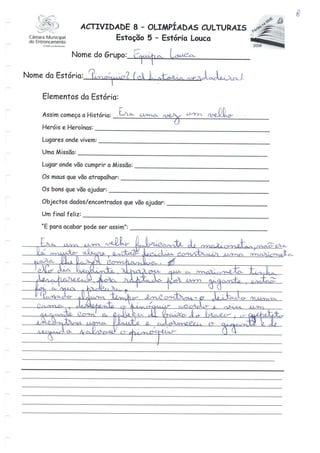 8
Câmara Municipal
do Entroncamento
ACTIVIDADE 8 - OLIMPÍADAS CULTURAIS
Estação 5 - Estória Louca
2008
Nome do Grupo: Equipa Louca
Nome da Estória: Pinóquio? (a história verdadeira)
Elementos da Estória:
Assim começa a História: Era uma vez um velho
Heróis e Heroínas:
Lugares onde vivem:
Uma Missão:
Lugar onde vão cumprir a Missão:
Os maus que vão atrapalhar:
Os bons que vão ajudar:
Objectos dados/encontrados que vão ajudar:
Um final feliz:
"E para acabar pode ser assim":
Era um um velho fabricante de marionetas, não era
lá muito alegre, então decidiu construir uma marioneta
para lhe fazer companhia.
No dia seguinte reparou que a marioneta tinha
desaparecido, fora raptado por um gigante, então
foi à sua procura.
Passado algum tempo encontrou-o deitado numa
cama, derrepente o penóquio acordou e viu um
gigante com a cabeça debaixo do braço, o
encontrou uma flauta e adormeceu o gigante e de
seguida salvou o penóquio